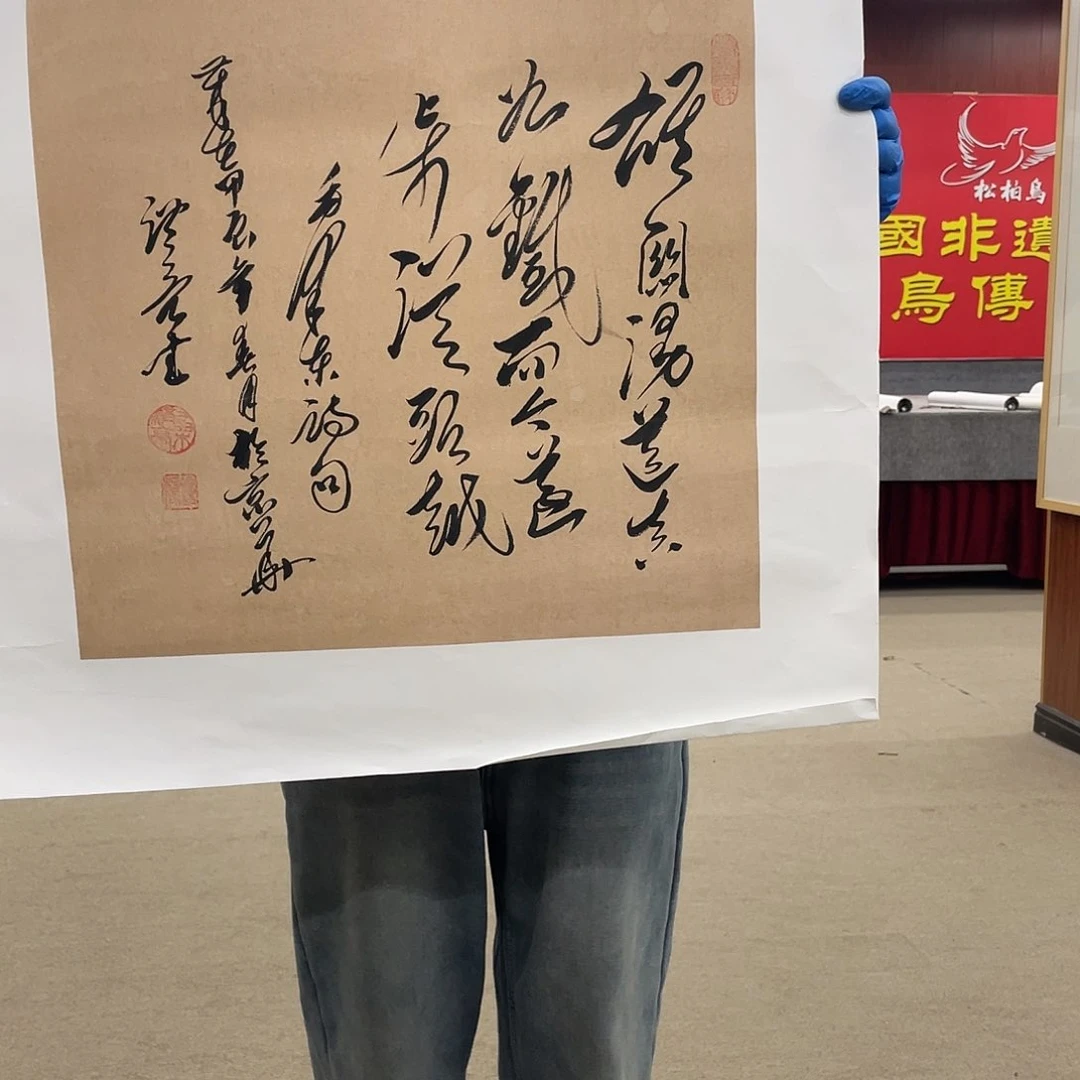 雄關漫道真
如鐵而今邁
步從頭越
毛澤東詞句
歲在甲辰年春月於京華
松柏鳥
國非遺
鳥傳